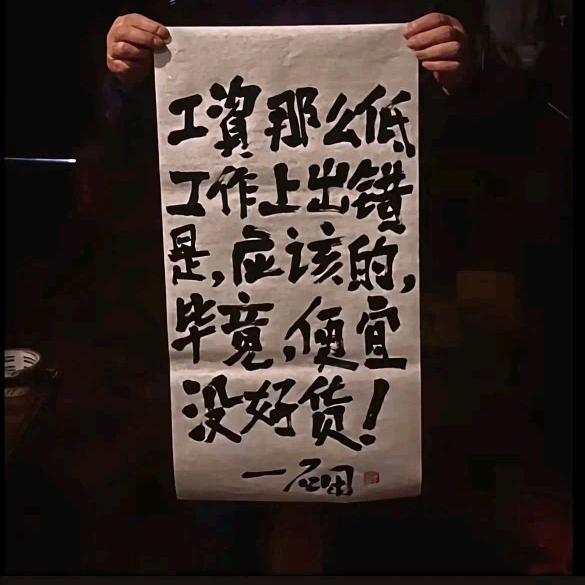 工資那么低
工作上出错
是,应该的,
毕竟,便宜
没好货!